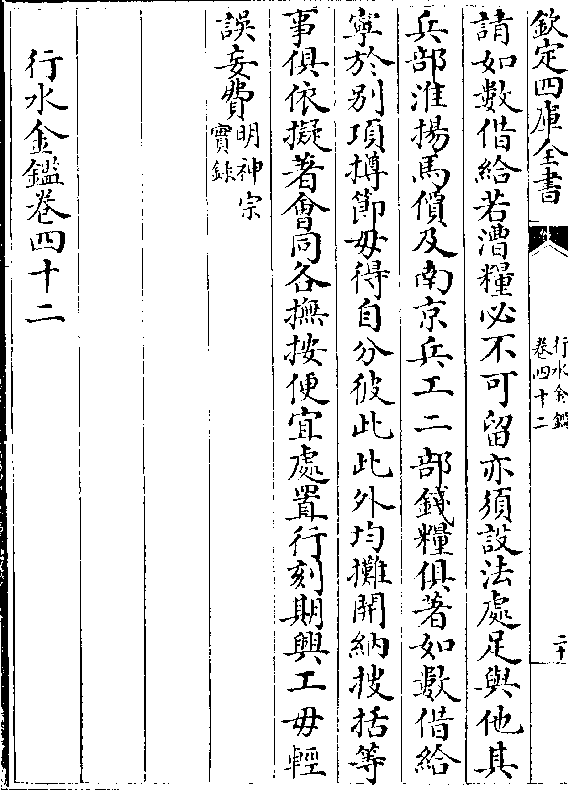 欽定四庫全書
行水金鑑
卷四十二
二十
請如數借給若漕糧必不可留亦須設法處足與他其
兵部淮揚馬價及南京兵工二部錢糧俱著如數借給
寧於别項撙節毋得自分彼此此外均攤開納搜括等
事俱依擬著會同各撫按便宜處置行刻期興工毋輕
誤妄費明神宗
實錄
行水金鑑卷四十二